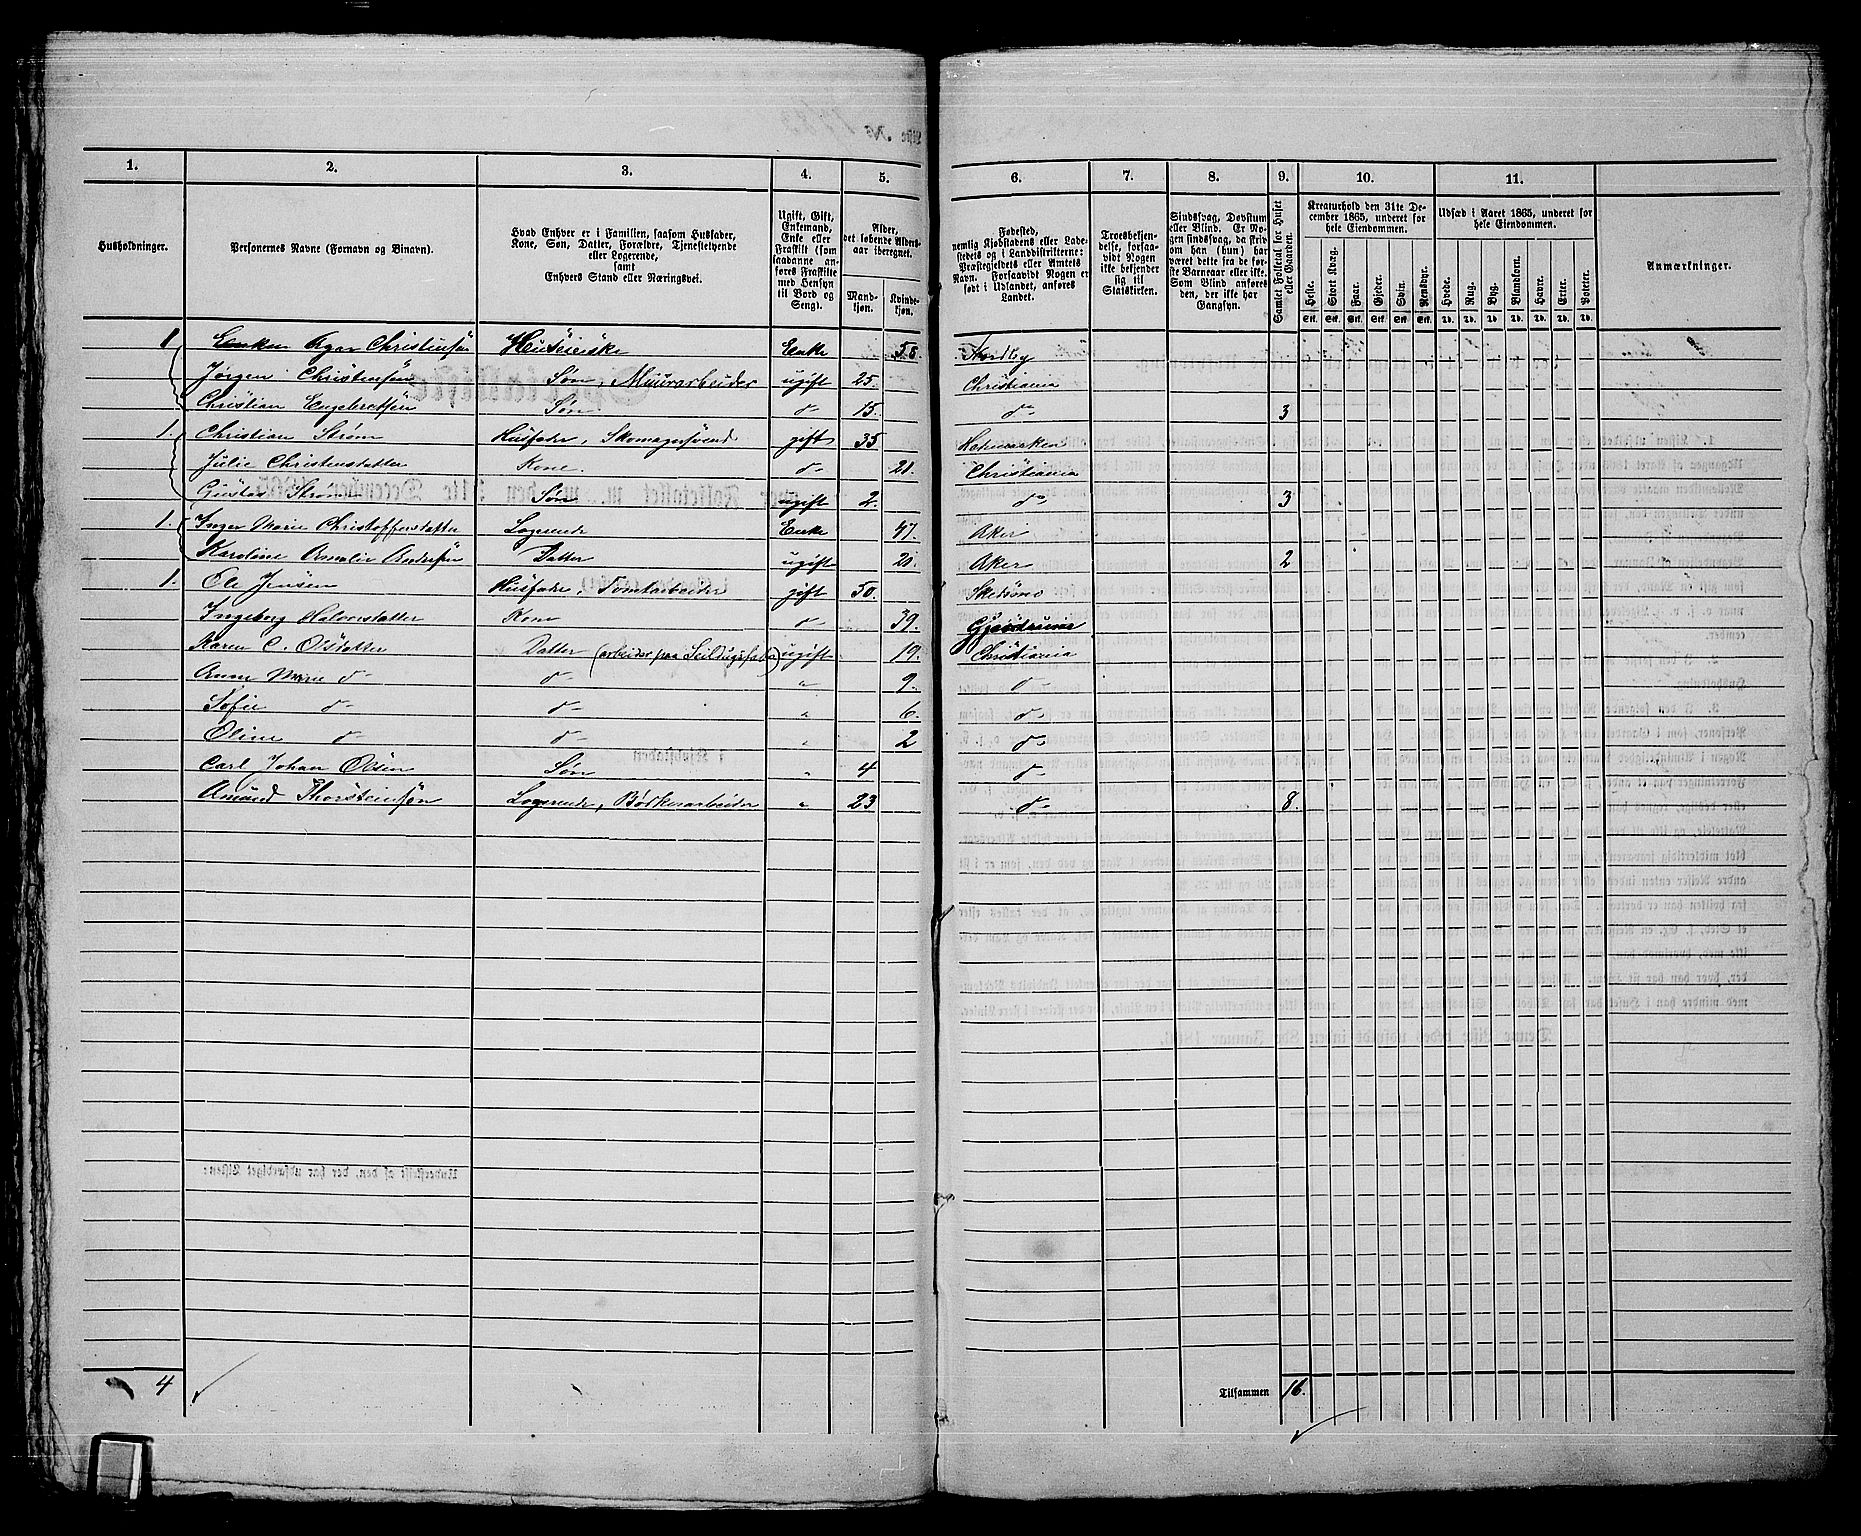 1. 2. 3. 4. 5. 6. 7. 8. 9. 10. 11.
Husholdninger.
Personernes Navne (Fornavn og Binavn).
Hvad Enhver er i Familien, saasom Husfader,
Kone, Søn, Datter, Forældre, Tjenestetyende
eller Logerende,
samt
Enhvers Stand eller Næringsvei.
Ugift, Gift,
Enkemand,
Enke eller
Fraskilt (som
saadanne an-
føres Fraskilte
med Hensyn
til Bord og
Seng).
Alder,
det løbende Alders-
aar iberegnet.
Mand-
kjøn.
Kvinde-
kjøn.
Fødested,
nemlig Kjøbstadens eller Lade-
stedets og i Landdistrikterne:
Præstegjeldets eller Amtets
Navn. Forsaavidt Nogen er
født i Udlandet, anføres
Landet.
Troesbekjen-
delse, forsaa-
vidt Nogen
ikke bekjender
sig til
Statskirken.
Sindssvag, Døvstum
eller Blind. Er No-
gen sindssvag, da skriv
om han (hun) har
været dette fra de før-
ste Barneaar eller ikke.
Som Blind anføres
den, der ikke har
Gangsyn.
Samlet Folketal for Huset
eller Gaarden.
Kreaturhold den 31te De-
cember 1865, underet for
hele Eiendommen.
Heste. Stort Kvæg. Faar. Gjeder. Svin. Rensdyr.
Stk. Stk. Stk. Stk. Stk. Stk.
Udsæd i Aaret 1865, underet for
hele Eiendommen.
Hvede. Rug. Byg. Blandkorn. Havre. Erter. Poteter.
Td. Td. Td. Td. Td. Td. Td.
Anmærkninger.
1 Enken Christensøn Huseierske Enke Nordby
Jørgen Christensøn Søn, Muurarbeider ugift 25. Christiania
Christian Engebretsen Søn d- 15. d- 3
1. Christian Strøm Husfader, Skomagersvend gift 35 Hedemarken
Julie Christensdatter Kone. d- 21. Christiania
Gustav Strøm Søn ugift 2. d- 3
1. Inger Marie Christoffersdatter Logerende Enke 47. Aker
Karoline Amalie Andersøn Datter ugift 20. Aker 2
1. Ole Jensen Husfader, Tomtarbeider gift 50. Skedsmo
Ingeborg Halvorsdatter Kone d- 39. Gjerdrum
Karen C. Olsdatter Datter (arbeider paa Seildugsfabr.) ugift 19. Christiania
Anne Marie d- d- " 9. d-
Sofie d- d- " 6. d-
Oline d- d- " 2 d-
Carl Johan Olsen Søn " 4 d-
Amund Thorsteinsøn Logerende, Bødkerarbeider " 23 d- 8.
4
Tilsammen 16.